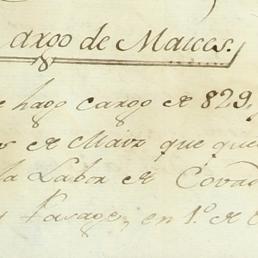 argo de Maices.
hago cargo de 829
de Maiz que que
la Labor de Cova
Pasage, en 1.º de